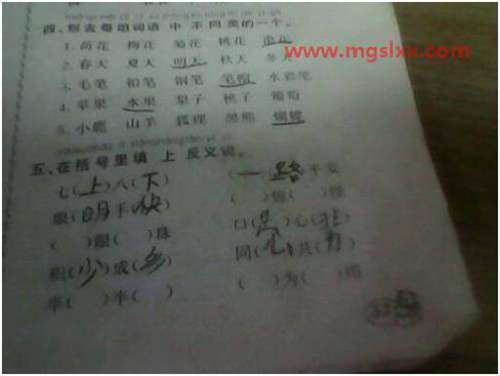 四、划去每组词语 中 不 同 类 的 一 个。
www.mgslxx.com
1. 荷花 梅花 菊花 桃花 雪花
2. 春天 夏天 明天 秋天 冬天
3. 毛笔 铅笔 钢笔 笔帽 水彩笔
4. 苹果 水果 梨子 桃子 葡萄
5. 小鹿 山羊 狐狸 黑熊 蝴蝶
五、在括号里填 上 反义词。
七(上)八(下) (一 路 平安
眼(明)手(快) ( ) ( )
( )眼( )珠 口(是)心(非)
积(少)成(多) 同( )共( )
( )半( ) ( )为( )用